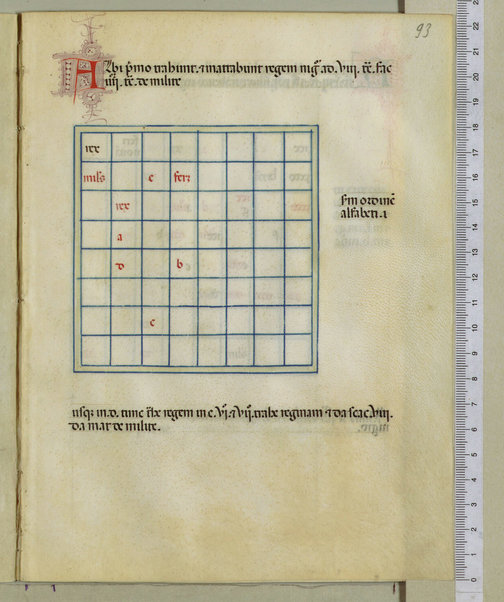 93
Albi p̃mo trabunt. ⁊ mattabunt regem nig̃ ad .Viij. tc̃. fac
iiij. tc̃. de milite
rex
mił's c ferz
rex
a
d b
c
s'm ordinẽ
alfabeti. i
usq; in .d. tunc fłx regem in c. Vj. ⁊ Vij. trahe reginam ⁊ da scac. Viij.
da mat de milite.